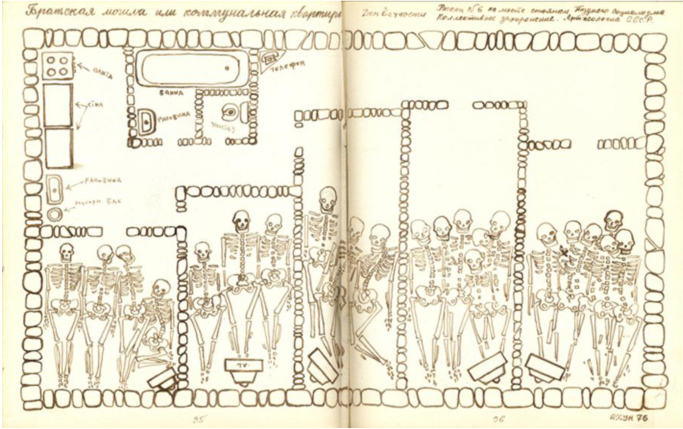 Братская могила или коммунальная квартира
Дом Вечности
Раскоп №6 на месте стоянки Позднего социализма
Коллективное захоронение. Археология СССР.
плита
телефон
ванна
раковина
унитаз
раковина
мусорн. бак
95
96
АХУН 76